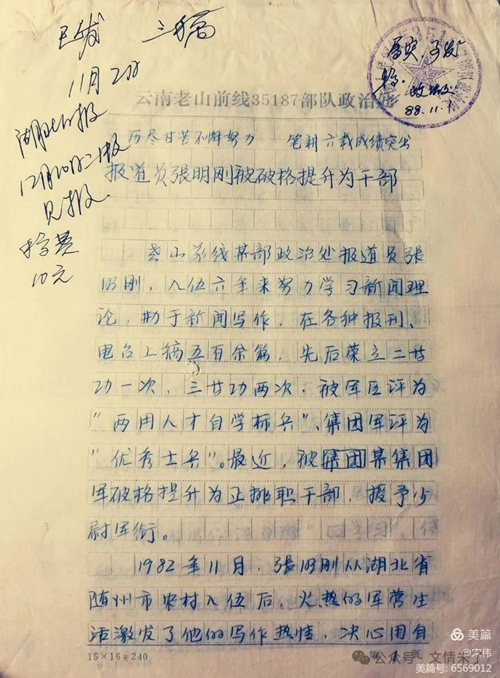 已发
三稿
11月2日
湖北日报
12月10日二版
见报
稿费
10元
属实，可发
88.11.1
云南老山前线35187部队政治处
历尽甘苦不懈努力 笔耕六载成绩突出
报道员张明刚被破格提升为干部
老山前线某部政治处报道员张
明刚，入伍六年来努力学习新闻理
论，勤于新闻写作，在各种报刊、
电台上稿五百余篇，先后荣立二等
功一次，三等功两次，被军区评为
“两用人才自学标兵”、集团军评为
“优秀士兵”。最近，被集团某集团
军破格提升为正排职干部，授予少
尉军衔。
1982年11月，张明刚从湖北省
随州市农村入伍后，火热的军营生
活激发了他的写作热情，决心用自
15×16=240
第1页
公众号·文情
美篇
@宋伟
美篇号: 6569012